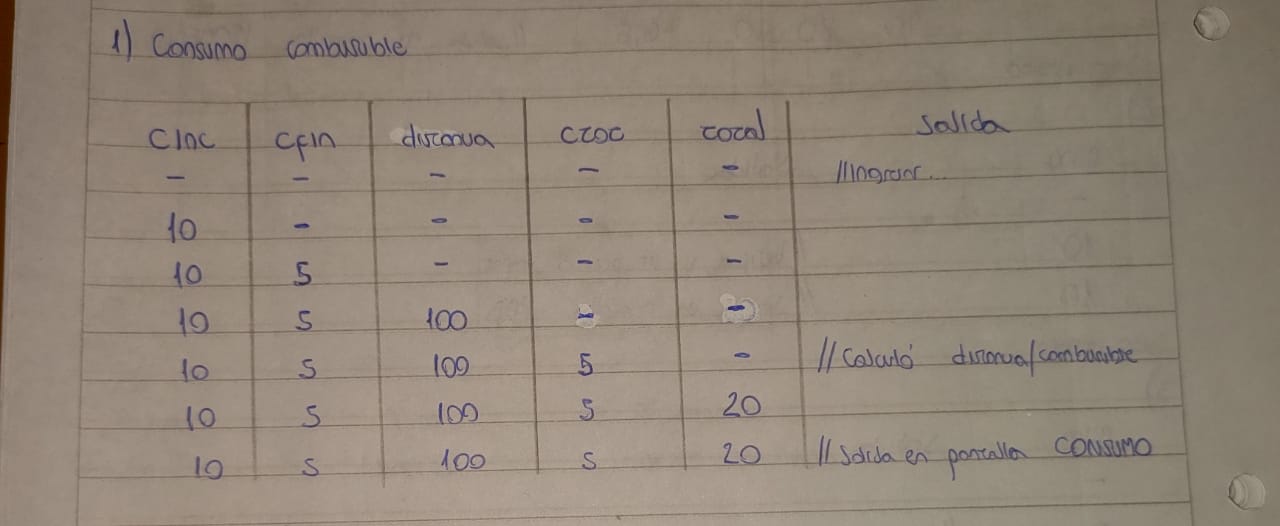 1) Consumo combustible
Cinc Cfin distancia ctoc total Salida
- - - - - //Ingresar...
10 - - - -
10 5 - - -
10 5 100 - -
10 5 100 5 - //Calculó distancia/combustible
10 5 100 5 20
10 5 100 5 20 //Salida en pantalla CONSUMO